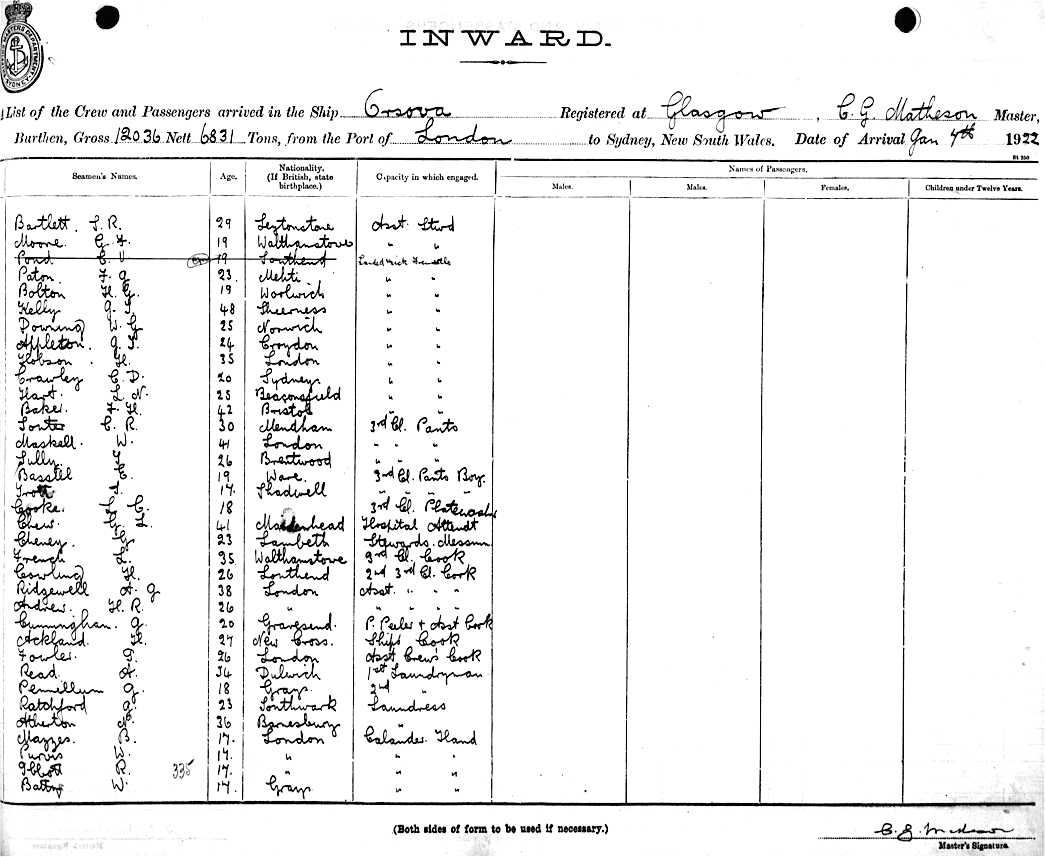 INWARD.
List of the Crew and Passengers arrived in the Ship Orsova Registered at Glasgow, C. G. Matheson Master,
Burthen, Gross 12036 Nett 6831 Tons, from the Port of London to Sydney, New South Wales. Date of Arrival Jan 7th 1922
Seamen's Names. Age. Nationality. (If British, state birthplace.) Capacity in which engaged. Names of Passengers.
Males. Males. Females. Children under Twelve Years.
Bartlett. S. R. 29 Leytonstone Asst. Stwd
Moore. G. F. 19 Walthamstow " "
Pond C. V. 19 Southend
Paton. F. G. 23 " "
Bolton H. G. 19 Woolwich " "
Kelly J. T. 48 Sheerness " "
Downing W. G. 25 Norwich " "
Appleton. J. S. 24 Croydon " "
Hobson. H. 35 London " "
Crawley C. D. 20 Sydney. " "
Hart. L. N. 25 Beaconsfield " "
Baker. F. H. 42 Bristol " "
Souter C. R. 30 Mendham 3rd Cl. Pants
Maskell. W. 41 London " " "
Sully. F. 26 Brentwood " " "
Basstel C. 19 Ware. 3rd Cl. Pants Boy.
Trott 17. Shadwell " " " "
Cooke. C. 18 3rd Cl. Platewash
Chew. G. L. 41 Maidenhead Hospital Attendt
Cheney. G. 23 Lambeth Stewards. Messmn
French L. 35 Walthamstow 3rd Cl. Cook
Cowling H. 26 Southend 2nd 3rd Cl. Cook
Ridgewell A. G. 38 London Asst. " " "
Andrew. H. R. 26 " " " " "
Cunningham. G. 20 Gravesend. P. Peeler & Asst Cook
Ackland. H. 27 New Cross. Ships Cook
Fowler. 26 London Asst Crew's Cook
Read. A. 34 Dulwich 1st Laundryman
Pemellum G. 18 Grays. 2nd "
Ratchford 23 Southwark Laundress
Atherton 36 Barnesbury "
Mazzes. 17. London Calander. Hand
Purvis E. 17. " " "
Ibbott R. 335 17. " " "
Batting W. 17. Grays " "
(Both sides of form to be used if necessary.)
C. G. Matheson
Master's Signature.